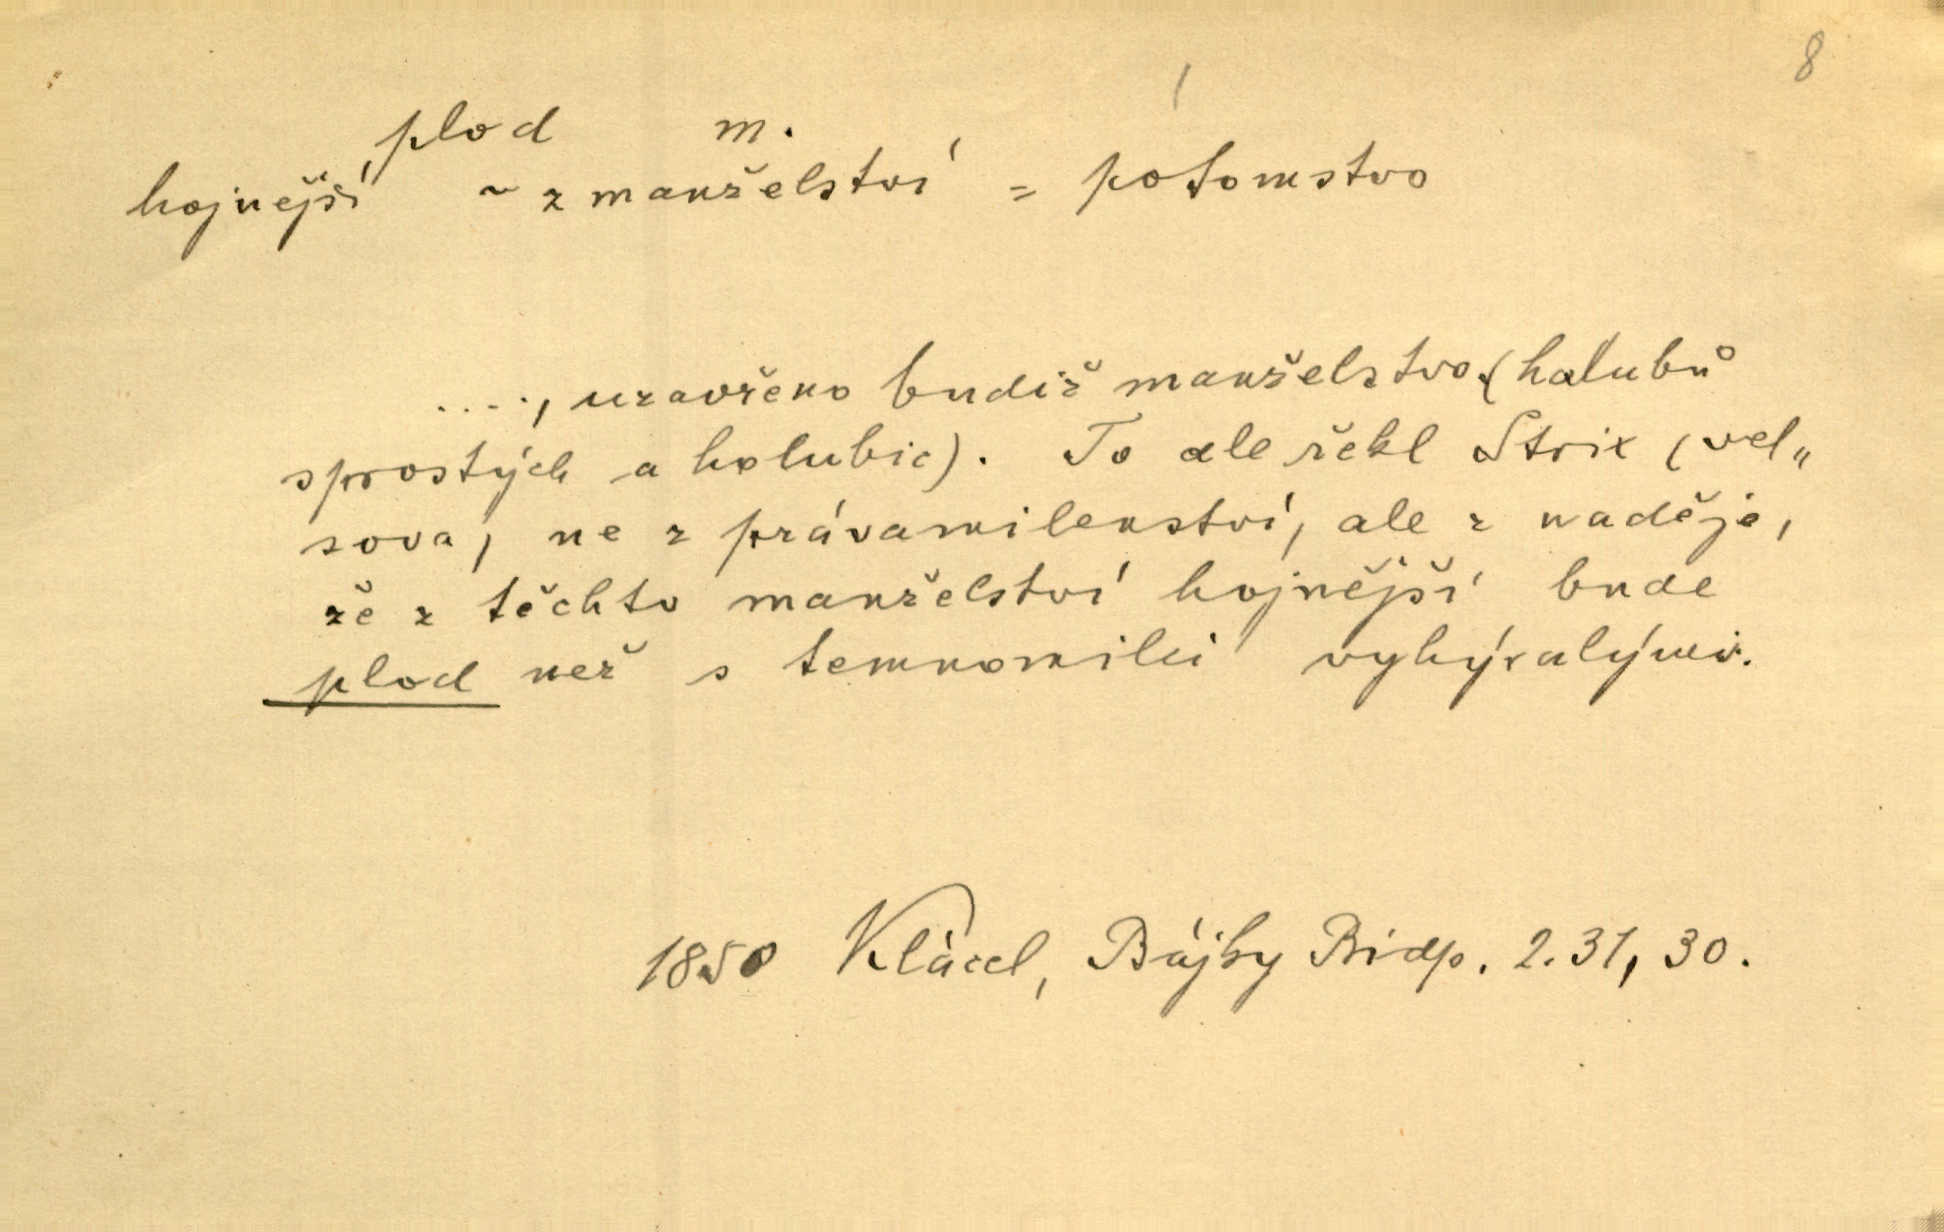 8
plod m.
hojnější ~ z manželství = potomstvo
...., uzavřeno budiž manželstvo (holubů
sprostých a holubic). To ale řekl Strix (vel„
sova, ne z právamilenství, ale z naděje,
že z těchto manželství hojnější bude
plod než s temnomilci vyhýralými.
1850 Klácel, Bájky Bidp. 2.31, 30.